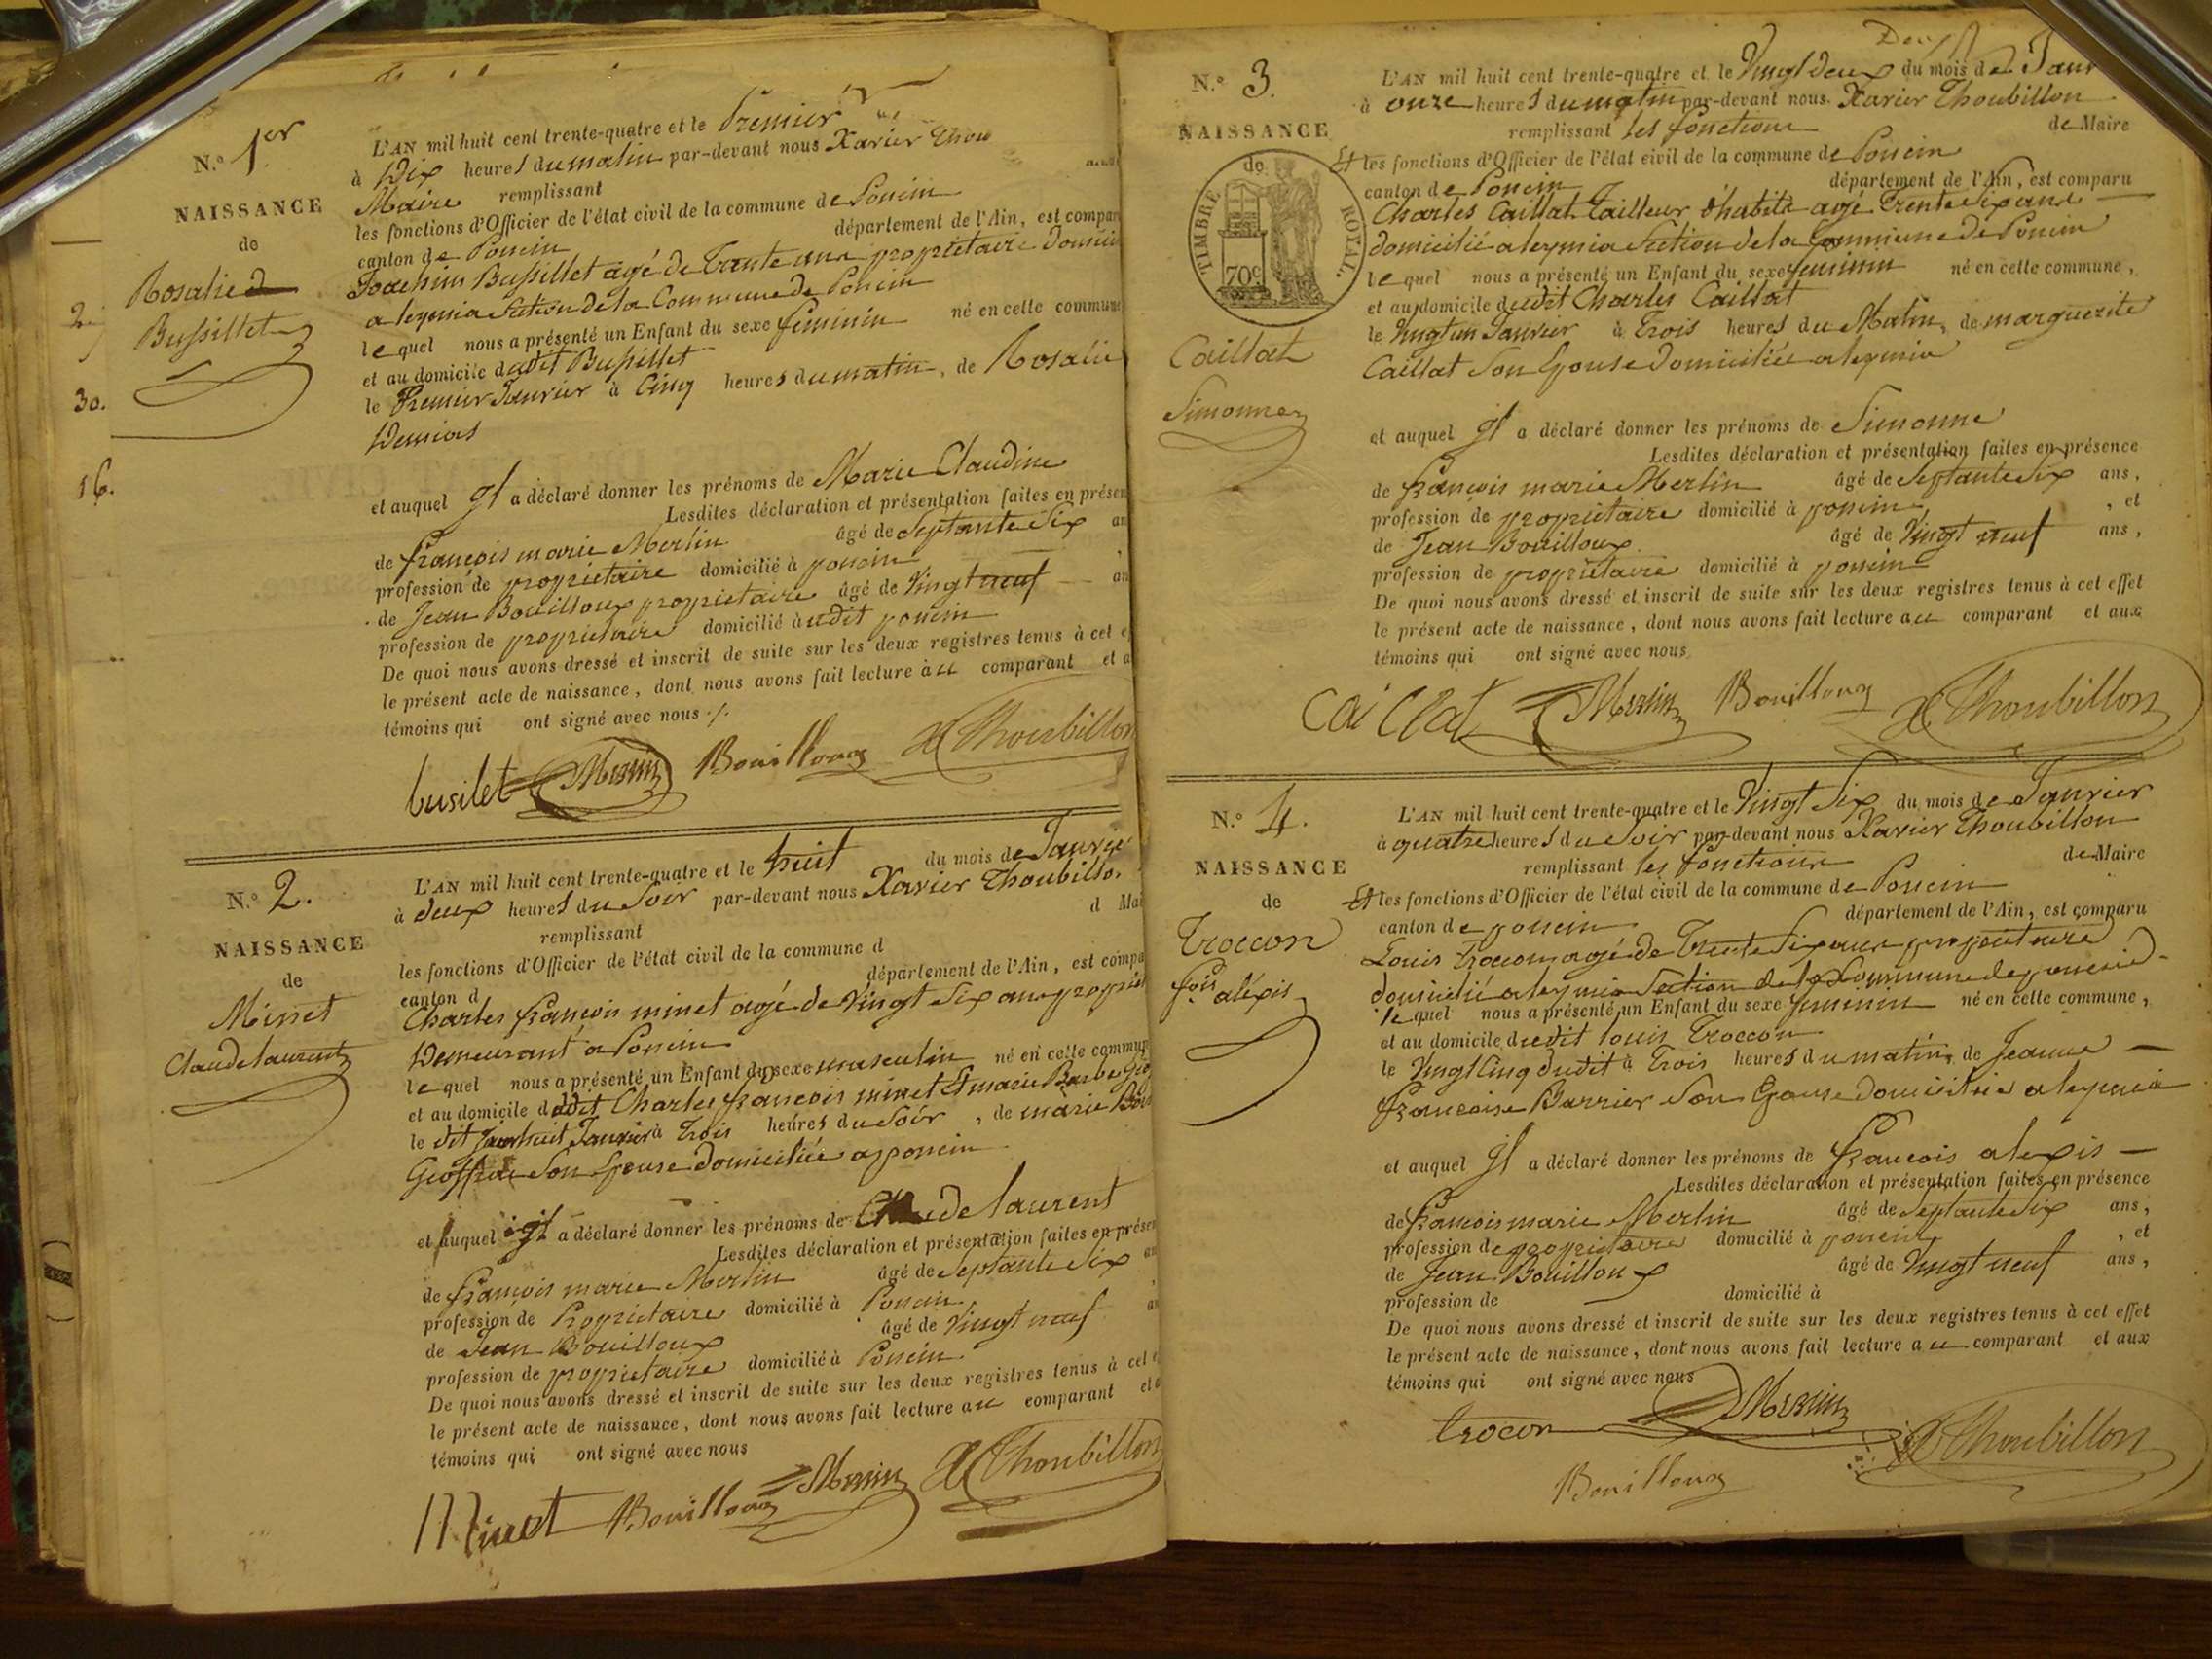 N.º 1er
NAISSANCE
de
Rosalie d
Bussillet
2.
30.
16.
L'AN mil huit cent trente-quatre et le Premier
à Dix heures du matin par-devant nous Xavier Thou
Maire remplissant
les fonctions d'Officier de l'état civil de la commune de Poncin
canton de Poncin département de l'Ain, est compar
Joachim Bussillet agé de Trente un propriétaire Domicil
a leymia Section de la Commune de Poncin
lequel nous a présenté un Enfant du sexe feminin né en cette commune
et au domicile dudit Bussillet
le Premier Janvier à Cinq heures du matin, de Rosalie
Demias
et auquel Il a déclaré donner les prénoms de Marie Claudine
Lesdites déclaration et présentation faites en présen
de françois marie Merlin âgé de Septante Six an
profession de proprietaire domicilié à poncin ,
de Jean Bouilloux proprietaire âgé de Vingt neuf an
profession de proprietaire domicilié à udit poncin
De quoi nous avons dressé et inscrit de suite sur les deux registres tenus à cet e
le présent acte de naissance, dont nous avons fait lecture au comparant et a
témoins qui ont signé avec nous ./.
busilet Merlin Bouilloux X Thoubillon
N.º 2.
NAISSANCE
de
Minet
Claude laurent
L'AN mil huit cent trente-quatre et le huit du mois de Janvier
à deux heures du Soir par-devant nous Xavier Thoubillo
remplissant d Mai
les fonctions d'Officier de l'état civil de la commune d
canton d département de l'Ain, est compa
Charles françois minet agé de Vingt Six ans propriet
Demeurant a Poncin
lequel nous a présenté un Enfant du sexe masculin né en cette commun
et au domicile dudit Charles françois minet Et marie Barbe Geo
le dit huit Janvier à Trois heures du Soir, de marie Bar
Geoffrai Son Epouse Domiciliée a poncin
et auquel Il a déclaré donner les prénoms de Claude laurent
Lesdites déclaration et présentation faites en présen
de françois marie Merlin âgé de Septante Six an
profession de Proprietaire domicilié à Poncin ,
de Jean Bouilloux âgé de Vingt neuf an
profession de proprietaire domicilié à Poncin
De quoi nous avons dressé et inscrit de suite sur les deux registres tenus à cet e
le présent acte de naissance, dont nous avons fait lecture au comparant et a
témoins qui ont signé avec nous
Minet Bouilloux Merlin X Thoubillon
N.º 3.
NAISSANCE
de
TIMBRE ROYAL.
70c
Caillat
Simonne
L'AN mil huit cent trente-quatre et le Vingt deux du mois de Janv
à onze heures du matin par-devant nous Xavier Thoubillon
remplissant les fonctions de Maire
Et les fonctions d'Officier de l'état civil de la commune de Poncin
canton de Poncin département de l'Ain, est comparu
Charles Caillat Tailleur d'habits agé Trente Six ans
domicilié a leymia Section de la Commune de Poncin
lequel nous a présenté un Enfant du sexe feminin né en cette commune,
et au domicile dudit Charles Caillat
le Vingt un Janvier à Trois heures du Matin, de marguerite
Caillat Son Epouse Domiciliée a leymia
et auquel Il a déclaré donner les prénoms de Simonne
Lesdites déclaration et présentation faites en présence
de françois marie Merlin âgé de Septante Six ans,
profession de proprietaire domicilié à poncin , et
de Jean Bouilloux âgé de Vingt neuf ans,
profession de proprietaire domicilié à poncin
De quoi nous avons dressé et inscrit de suite sur les deux registres tenus à cet effet
le présent acte de naissance, dont nous avons fait lecture au comparant et aux
témoins qui ont signé avec nous
Caillat Merlin Bouilloux X Thoubillon
N.º 4.
NAISSANCE
de
Troccon
fois aléxis
L'AN mil huit cent trente-quatre et le Vingt Six du mois de Janvier
à quatre heures du Soir par-devant nous Xavier Thoubillon
remplissant les fonctions de Maire
Et les fonctions d'Officier de l'état civil de la commune de Poncin
canton de poncin département de l'Ain, est comparu
Louis Troccon agé de Trente Six ans proprietaire
domicilié a leymia Section de la Commune de poncin
lequel nous a présenté un Enfant du sexe feminin né en cette commune,
et au domicile dudit louis Troccon
le Vingt Cinq dudit à Trois heures du matin, de Jeanne
françoise Barrier Son Epouse Domiciliée a leymia
et auquel Il a déclaré donner les prénoms de françois alexis
Lesdites déclaration et présentation faites en présence
de françois marie Merlin âgé de Septante Six ans,
profession de proprietaire domicilié à poncin , et
de Jean Bouilloux âgé de Vingt neuf ans,
profession de domicilié à
De quoi nous avons dressé et inscrit de suite sur les deux registres tenus à cet effet
le présent acte de naissance, dont nous avons fait lecture au comparant et aux
témoins qui ont signé avec nous
trocon Merlin X Thoubillon
Bouilloux